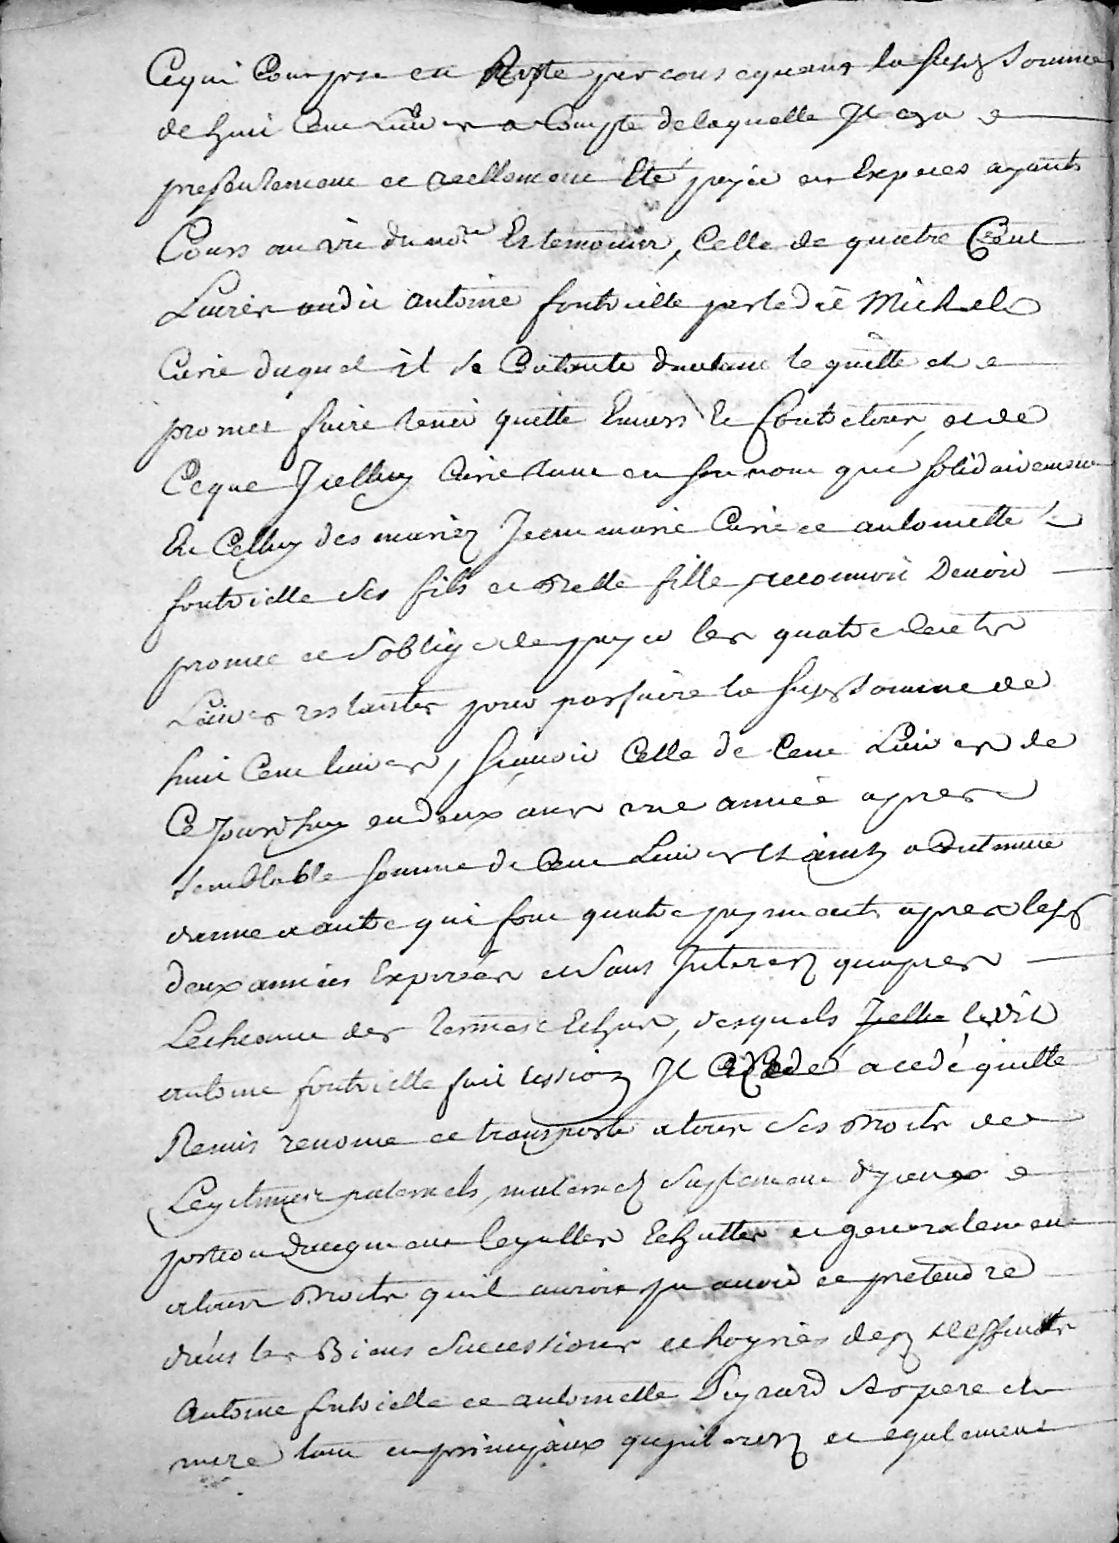 Ce qui Compose en Reste par consequant la susd somme
de huit Cent Livres a Compte de laquelle Il a eu
presentement et reellement Eté payée en Expeces ayants
Cours au vu du no.re Et temoins, Celle de quatre Cent
Livres audit antoine fontvieille par ledit Michel
Curie duquel il se Contente d'autant le quitte et
promet faire tenir quitte Envers Et Contre tous, et de
Ce que Icelluy Curie tant en son nom que solidairement
En Celluy des mariez Jean marie Curie et antoinette
fontvieille ses fils et Belle fille, reconnoit Devoir
promet et s'oblige de payer les quatre Cents
Livres restantes pour parfaire la susd somme de
huit Cent livres, sçavoir Celle de Cent Livres de
Ce Jourd'huy en deux ans une année apres
semblable somme de Cent Livres et ainsy a Continuer
d'année a autre qui font quatre payements apres lesd
deux années Expirées et sans Interez qu'apres
L'echeance des termes Echus, desquels Icelle ledit
antoine fontvieille fait cession Il a cedé quitte
Remis renonce et transporte a tous ses Droits de
Legitimes paternels, maternels suplement d'yceux
portion d'augment legulles Echuttes et generalement
a tous Droits qu'il auroit pu avoir et pretendre
dans les Biens successions et hoyries desd deffunts
Antoine fontvieille et antoinette Peyrard ses pere et
mere tant en principaux qu'interez et egalement